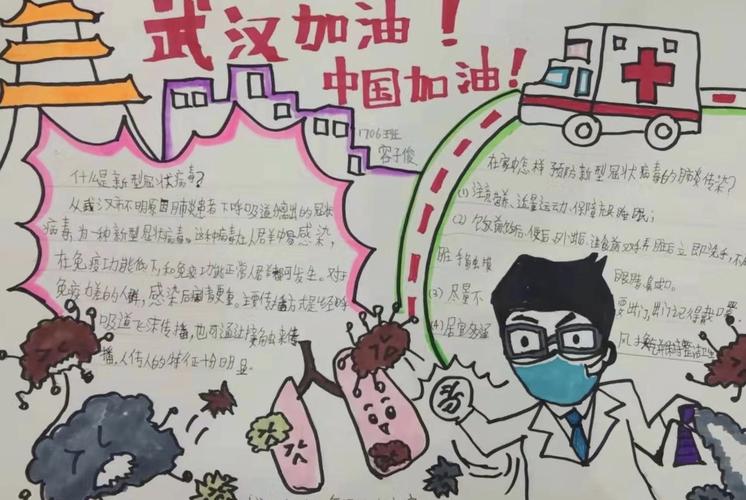 武汉加油！
中国加油！
1706班
容子俊
什么是新型冠状病毒？
从武汉市不明原因肺炎患者下呼吸道分离出的冠状
病毒为一种新型冠状病毒。这种病毒在人群中易感染，
在免疫功能低下和免疫功能正常人群都可发生。对于
免疫力差的人群，感染后病毒更重。主要传播方式是经呼
吸道飞沫传播，也可通过接触来传
播，人传人的特征十分明显。
在家中怎样预防新型冠状病毒的肺炎传染？
(1) 注意营养、适量运动、保障充足睡眠；
(2) 饮食前饭后，便后、外出后、
立即洗手，不
眼睛鼻和口。
(3) 尽量不
要出门，出门记得戴口罩。
(4) 居室多通
风